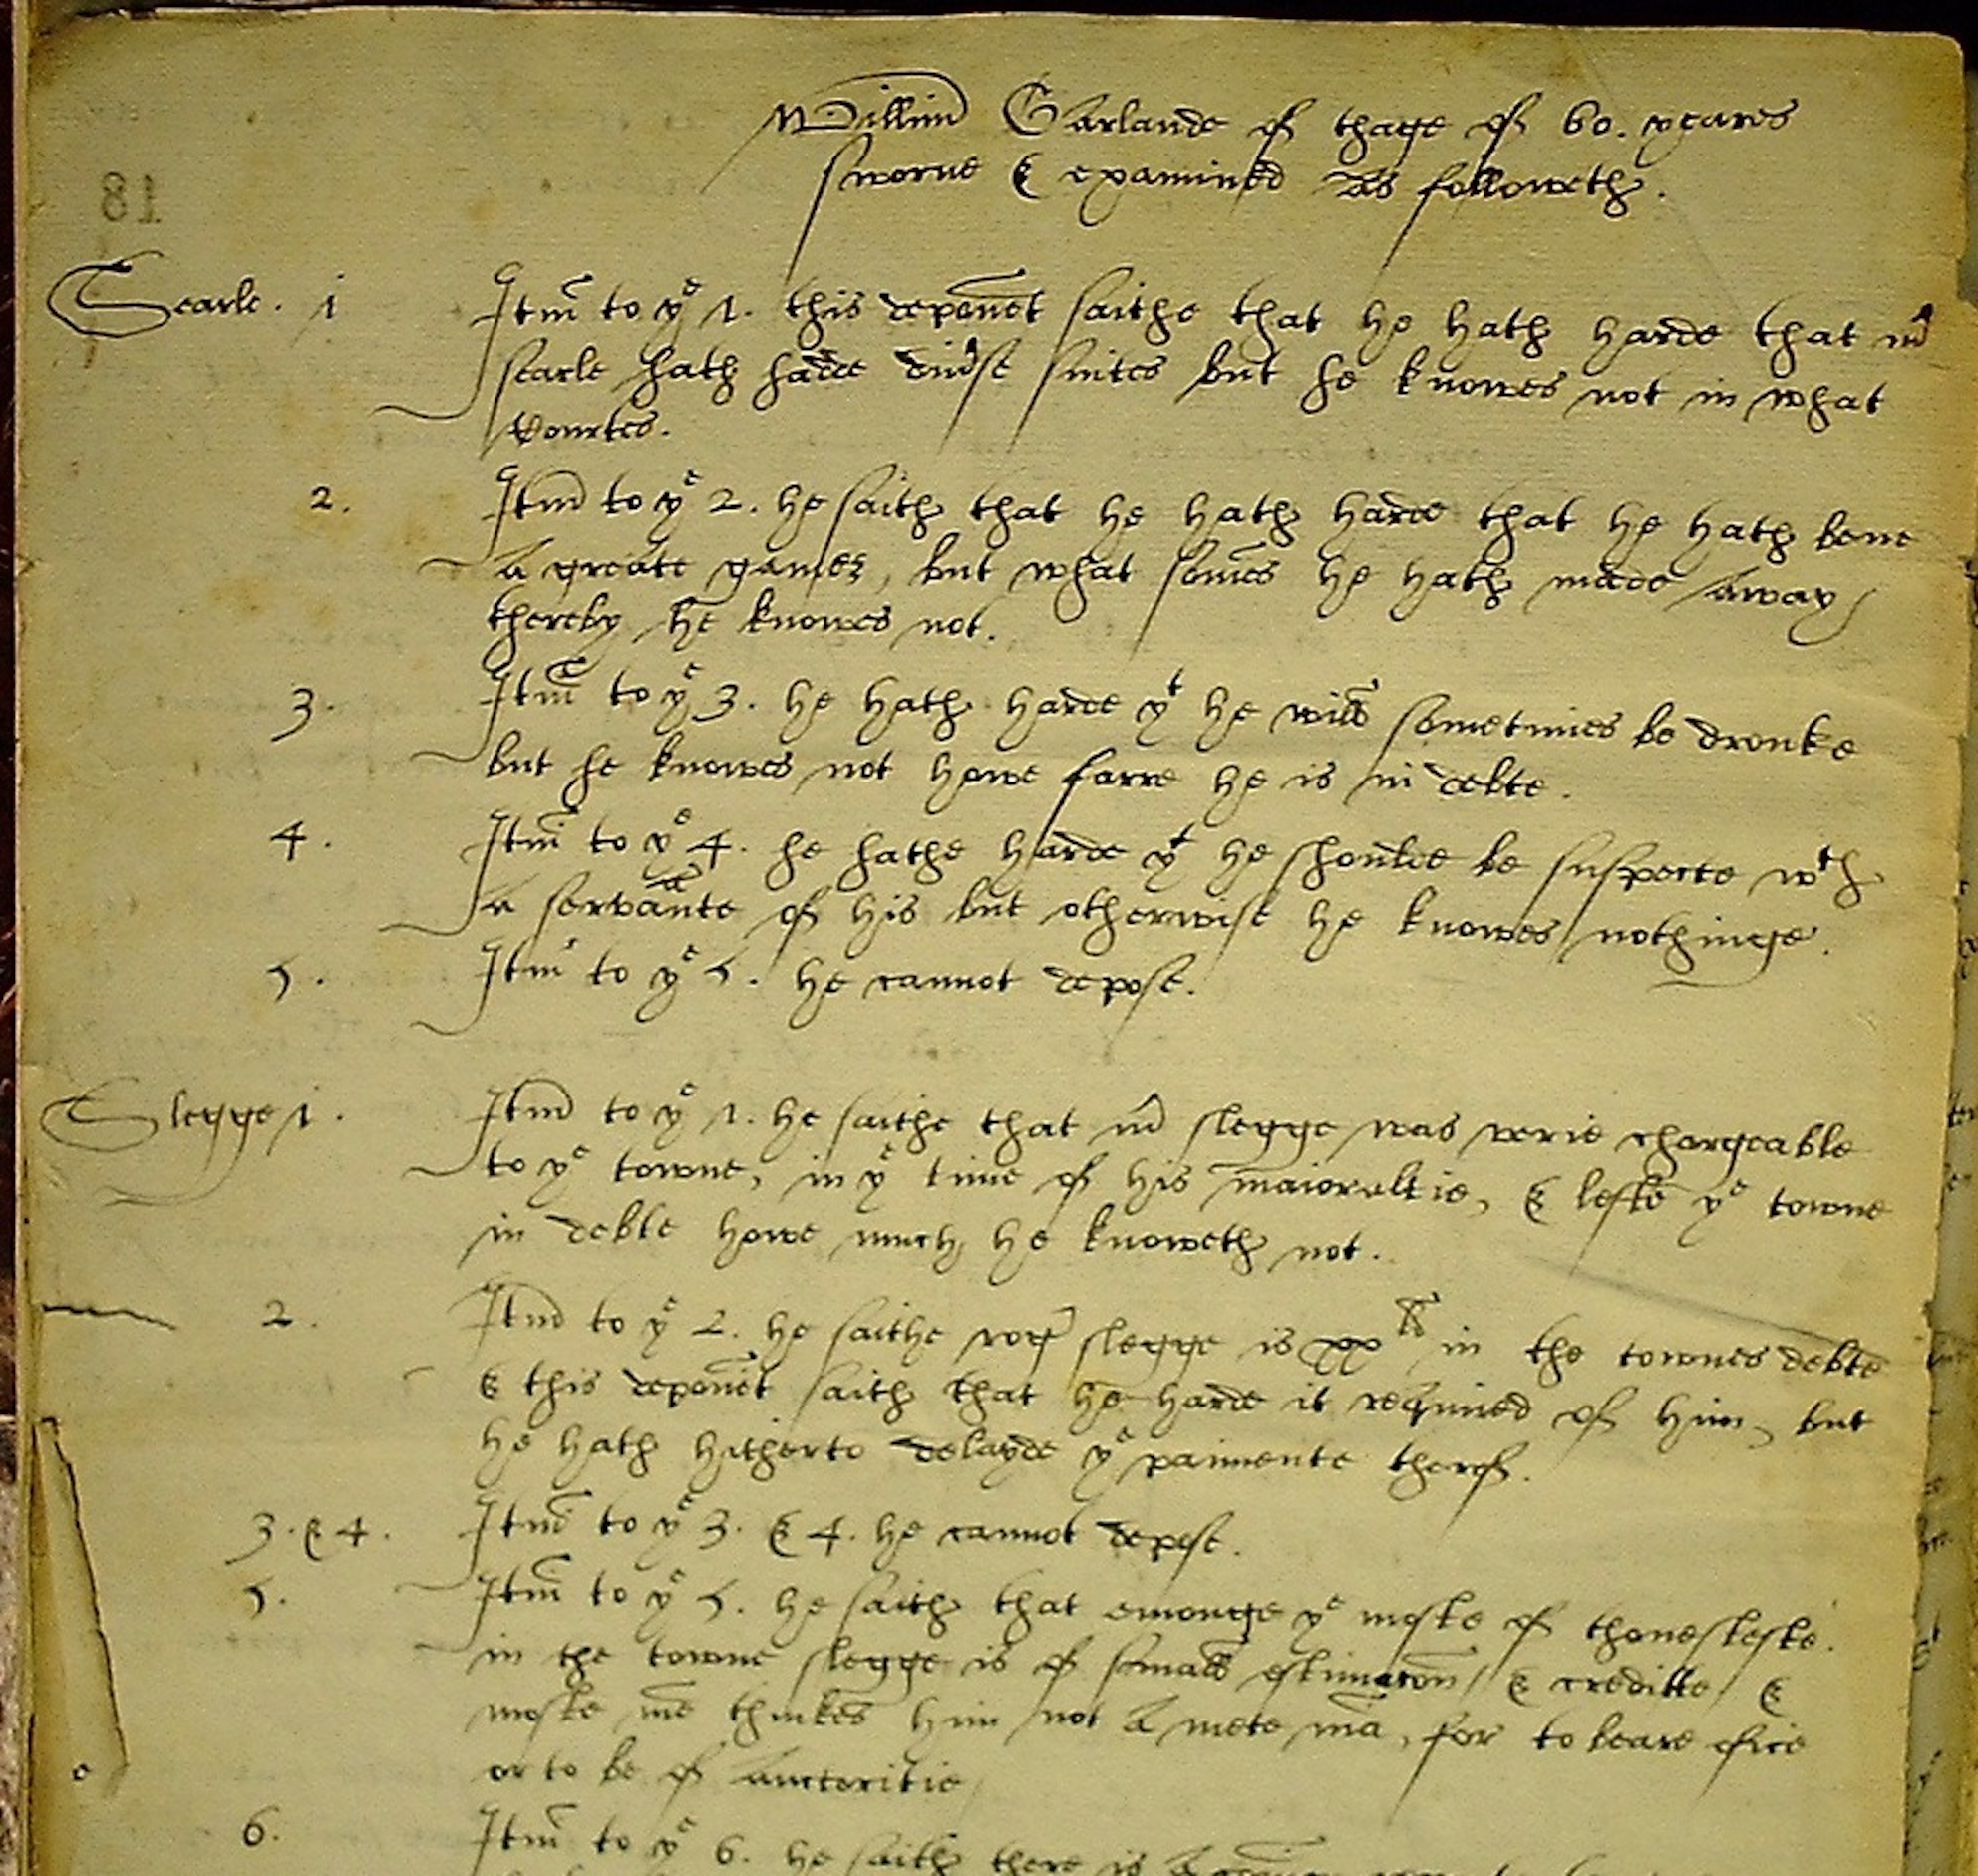 Willim̄ Garlande of thage of 60. yeares
sworne & examined as followeth.
18
Searle. 1 Itm̄ to yᵉ 1. this depon̄et saithe that he hath harde that mʳ
searle hath hadde diu'se suites but he knowes not in what
Courtes.
2. Itm̄ to yᵉ 2. he saith that he hath harde that he hath bene
a greate gamer, but what som̄es he hath made away
thereby he knowes not.
3. Itm̄ to yᵉ 3. he hath harde yᵗ he will sometimes be dronke
but he knowes not howe farre he is in debte.
4. Itm̄ to yᵉ 4. he hathe harde yᵗ he shoulde be suspecte wᵗh
a servante of his but otherwise he knowes nothinge.
5. Itm̄ to yᵉ 5. he cannot depose.
Slegge 1. Itm̄ to yᵉ 1. he saithe that mʳ slegge was verie chargeable
to yᵉ towne, in yᵉ time of his maioraltie, & lefte yᵉ towne
in debte howe much he knoweth not.
2. Itm̄ to yᵉ 2. he saithe slegge is xxˡⁱ in the townes debte
& this depon̄et saith that he harde it required of him, but
he hath hitherto delayde yᵉ paimente therof.
3. & 4. Itm̄ to yᵉ 3. & 4. he cannot depose.
5. Itm̄ to yᵉ 5. he saith that emonge yᵉ moste of thonesteste
in the towne slegge is of small estimacōn, & creditte, &
moste mē thinkes him not a mete mā, for to beare ofice
or to be of auctoritie
6. Itm̄ to yᵉ 6. he saith there is a